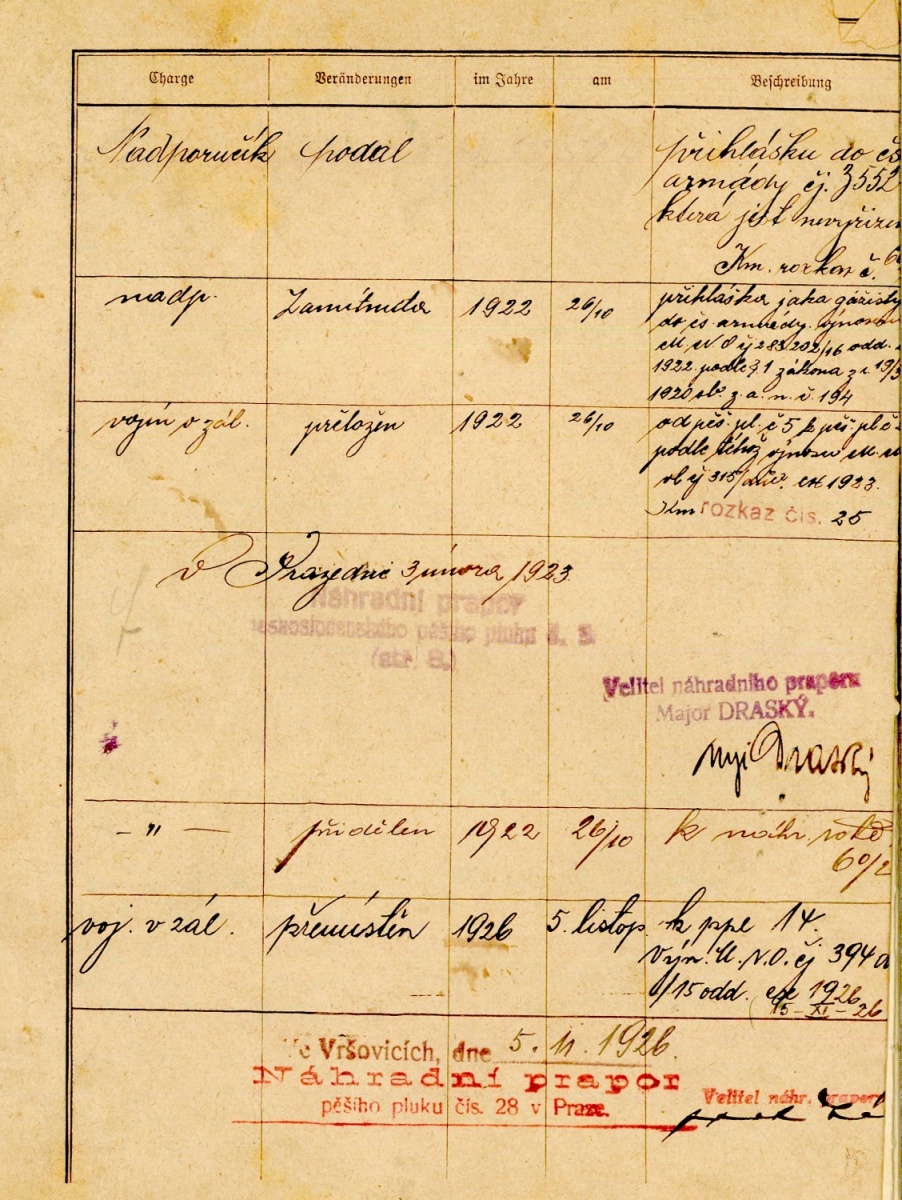 Charge Veränderungen im Jahre am Beschreibung
Nadporučík podal přihlášku do čs
armády čj. 3552
která jest nevyřízen
Km. rozkaz č. 6
nadp. Zamítnuta 1922 26/10 přihláška jako gážisty
do čs. armády. výnosem
M. N. O čj 283.202/16 odd.
1922 podle § 1 zákona z r. 19/3
1920 sb. z. a. n. č. 194
vojín v zál. přeložen 1922 26/10 od pěš. pl. č 5 k pěš. pl č
podle téhož výnosu M.
čj 315/ 1923.
Km rozkaz čís. 25
V Praze dne 3 února 1923
Náhradní prapor
československého pěšího pluku č. 5
(str. 8.)
Velitel náhradního praporu
Major DRASKÝ.
Mjr Draský
– " – přidělen 1922 26/10 k náhr. rotě
60/2
voj. v zál. přemístěn 1926 5. listop. k ppl 14.
výn. M. N. O. čj 394
/15 odd. 1926
15 – XI – 26
Ve Vršovicích, dne 5. 11. 1926.
Náhradní prapor
pěšího pluku čís. 28 v Praze.
Velitel náhr. praporu